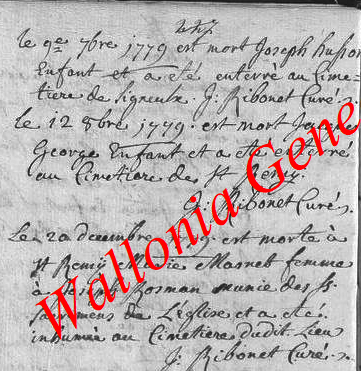 le 9e 7bre 1779 est mort Joseph husson
Enfant et a été enterré au Cime-
tiere de Signeulx. J: Ribonet Curé.
le 12 8bre 1779. est mort
George Enfant et a été enterré
au Cimetiere de St Remy.
J: Ribonet Curé.
Le 20 decembre est morte à
St Remy Marie Masnet femme
à Joseph Rosman munie des SS.
Sacremens de L'Eglise et a été
inhumée au Cimetiere dudit Lieu
J: Ribonet Curé.
Wallonia Gene